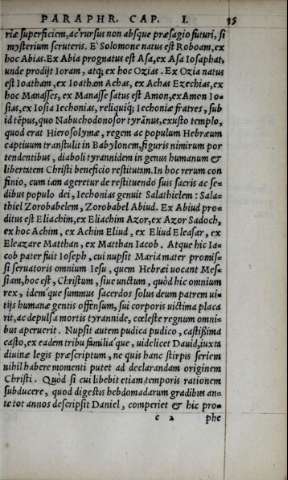 PARAPHR. CAP. I. 15
riæ superficiem, ac rursus non absque præsagio futuri, si
mysterium scruteris. E' Solomone natus est Roboam, ex
hoc Abias. Ex Abia prognatus est Asa, ex Asa Iosaphat,
unde prodijt Ioram, atq; ex hoc Ozias. Ex Ozia natus
est Ioatham, ex Ioatham Achas, ex Achas Ezechias, ex
hoc Manasses, ex Manasse satus est Amon, ex Amon Io-
sias, ex Iosia Iechonias, reliquiq; Iechoniæ fratres, sub
id tẽpus, quo Nabuchodonosor tyrãnus, exusto templo,
quod erat Hierosolymæ, regem ac populum Hebræum
captiuum transtulit in Babylonem, figuris nimirum por
tendentibus, diaboli tyrannidem in genus humanum &
libertatem Christi beneficio restitutam. In hoc rerum con
finio, cum iam ageretur de restituendo suis sacris ac se-
dibus populo dei, Iechonias genuit Salathielem: Sala-
thiel Zorobabelem, Zorobabel Abiud. Ex Abiud pro-
ditus est Eliachim, ex Eliachim Azor, ex Azor Sadoch,
ex hoc Achim, ex Achim Eliud, ex Eliud Eleasar, ex
Eleazare Matthan, ex Matthan Iacob. Atque hic Ia-
cob pater fuit Ioseph, cui nupsit Maria mater promis-
si seruatoris omnium Iesu, quem Hebræi uocant Mes-
siam, hoc est, Christum, siue unctum, quòd hic omnium
rex, idem que summus sacerdos solus deum patrem ui-
tijs humanæ gentis offensum, sui corporis uictima placa
rit, ac depulsa mortis tyrannide, cœleste regnum omni-
bus aperuerit. Nupsit autem pudica pudico, castissima
casto, ex eadem tribu familia'que, uidelicet Dauid, iuxta
diuinæ legis præscriptum, ne quis hanc stirpis seriem
nihil habere momenti putet ad declarandam originem
Christi. Quòd si cui libebit etiam temporis rationem
subducere, quod digestis hebdomadarum gradibus an-
te tot annos descripsit Daniel, comperiet & hic pro-
c 2 phe